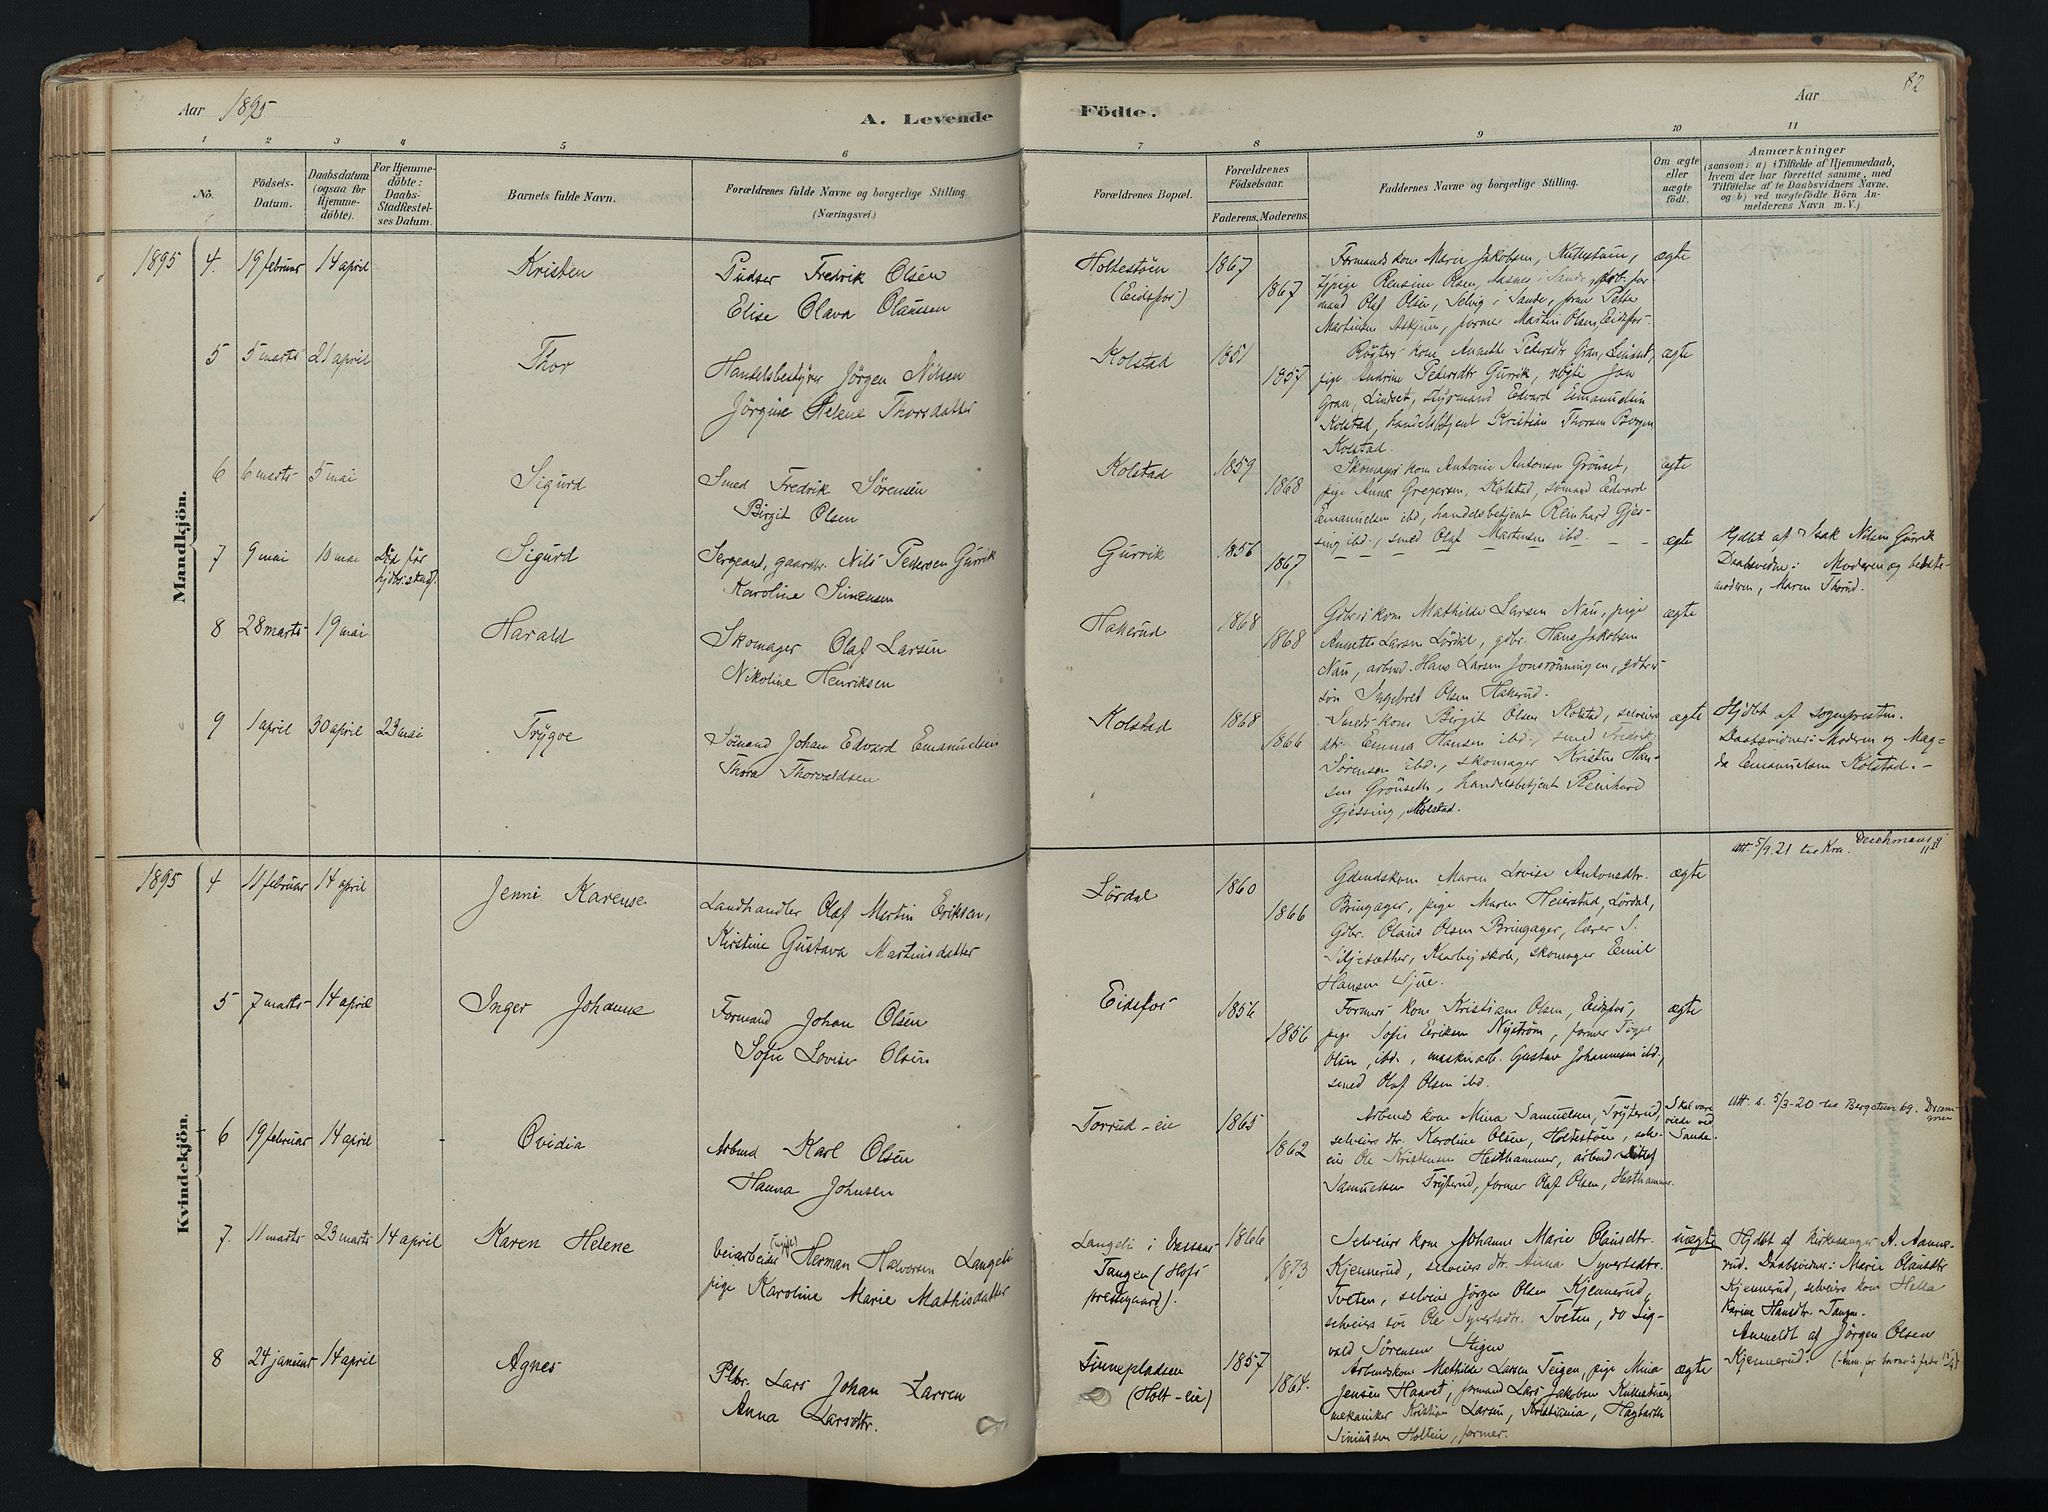 82
Aar 1895
A. Levende
Födte.
Aar
1
2
3
4
5
6
7
8
9
10
11
No.
Födsels-
Datum.
Daabsdatum
(ogsaa for
Hjemme-
döbte).
For Hjemme-
döbte:
Daabs-
Stadfæstel-
ses Datum.
Barnets fulde Navn.
Forældrenes fulde Navne og borgerlige Stilling.
(Næringsvei.)
Forældrenes Bopæl.
Forældrenes
Födselsaar.
Faderens.
Moderens.
Faddernes Navne og borgerlige Stilling.
Om ægte
eller
uægte
födt.
Anmærkninger
(saasom: a) i Tilfælde af Hjemmedaab,
hvem der har forrettet samme, med
Tilföielse af to Daabsvidners Navne,
og b) ved uægtefödte Börn An-
melderens Navn m. V.)
Mandkjön.
1895 4. 19 februar 14 april
Kristen
Pudser Fredrik Olsen
Elise Olava Olaussen
Holtestöen
(Eidsfos)
1867
1867
Formands kone Marie Jakobsen,
pige Rensine Olsen, Aasnes i Sande,
mand Olaf Olsen, Selvig i Sande,
Martinsen Askjum, former Martin Olsen, Eidsfos.
ægte
5 5 marts 21 april
Thor
Handelsbestyrer Jörgen Nilsen
Jörgine Helene Thorsdatter
Kolstad
1851
1857
Røgters kone Annette Pedersdtr Gran, Lindset,
pige Andrine Pedersdtr Gurrik, røgte Jon
Gran, Lindset, styrmand Edvard Emanuelsen
Kolstad, handelsbetjent Kristian Thorsen Borgen
Kolstad.
ægte
6 6 marts 5 mai
Sigurd
Smed Fredrik Sörensen
Birgit Olsen
Kolstad
1859
1868
Skomager kone Antonie Antonsen Grönset,
pige Anna Gregersen, Kolstad, sömand Edvard
Emanuelsen ibd, handelsbetjent Reinhard Gjes-
sing ibd., smed Olaf Martinsen ibd.
ægte
7 9 mai 10 mai Död før
hjdbs. stadf.
Sigurd
Sergeant, gaardbr. Nils Pedersen Gurrik
Karoline Simensen
Gurrik
1856
1867
ægte
Hjdbt af Isak Nilsen Gurrik
Daabsvidne: Moderen og bedste-
moderen, Maren Thorud.
8 28 marts 19 mai
Harald
Skomager Olaf Larsen
Nikoline Henriksen
Hakerud
1868
1868
Gdbrs kone Mathilde Larsen Nau, pige
Annette Larsen Lördal, gdbr. Hans Jakobsen
Nau, arbmd. Hans Larsen Jonsrönningen, gdbr-
sön Ingebret Olsen Hakerud.
ægte
9 1 april 30 april 23 mai
Trygve
Sömand Johan Edvard Emanuelsen
Thora Thorvaldsen
Kolstad
1868
1866
Smeds kone Birgit Olsen Kolstad, selveiers
dtr. Emma Hansen ibd., smed Fredrik
Sörensen ibd., skomager Kristen Han-
sen Grönseth, handelsbetjent Reinhard
Gjessing, Kolstad.
ægte
Hjdbt af sognepresten.
Daabsvidner: Moderen og Mag-
da Emanuelsen Kolstad.
Kvindekjön.
1895 4 11 februar 14 april
Jenni Karense
Landhandler Olaf Martin Eriksen,
Kirstine Gustava Martinsdatter
Lördal
1860
1866
Gdmdskone Maren Lovise Antonsdtr.
Bringager, pige Maren Heierstad, Lördal,
Gdbr. Olaus Olsen Bringager, lærer S.
Siljesæther, Kaarby skole, skomager Emil
Hansen
ægte
Att. 5/9.21 til Kra. Deichmans
5 7 marts 14 april
Inger Johanne
Formand Johan Olsen
Sofie Lovise Olsen
Eidsfos
1856
1856
Formers kone Kristiane Olsen, Eidsfos,
pige Sofie Eriksen Nyström, former
Olsen, ibd., maskinarb. Gustav Johannesen ibd.,
smed Olaf Olsen ibd.
ægte
6 19 februar 14 april
Ovidia
Arbmd Karl Olsen
Hanna Johnsen
Torrud-eie
1865
1862
Arbmds kone Mina Samuelsen, Tryterud,
selveiers dtr. Karoline Olsen, Holtestöen,
eie Ole Kristensen Hesthammer, arbmd.
Samuelsen Tryterud, former Olaf Olsen, Hesthammer.
Skal være
viede ved
Sande.
Att. s. 5/3-20 til Bergstien 69. Dram-
men
7. 11 marts 23 marts 14 april
Karen Helene
veiarbeider Herman Halvorsen Langeli
pige Karoline Marie Mathisdatter
Langeli i Vassaas
Tangen (Hofs
prestegaard).
1866
1873
Selveiers kone Johanne Marie Olausdtr.
Kjennerud, selveiers dtr. Anna Syvertsdtr.
Tveten, selveier Jörgen Olsen Kjennerud,
selveiers sön Ole Syvertsdtr. Tveten, do Sig-
vald Sörensen Stigen
uægte
Hjdbt af kirkesanger A. Aanne-
rud. Daabsvidner: Marie Olausdtr
Kjennerud, selveiers kone Helle
Karine Hansdtr. Tangen.
Anmeldt af Jörgen Olsen
Kjennerud.
8 24 januar 14 april
Agnes
Plbr. Lars Johan Larsen
Anna Larsdtr.
Finnepladsen
(Holt-eie)
1857
1864.
Arbmdskone Mathilde Larsen Teigen, pige Mina
Jensen Haavet, formand Lars Jakobsen
mekaniker Kristian Larsen, Kristiania, Hagbarth
Simensen Holteie, former.
ægte